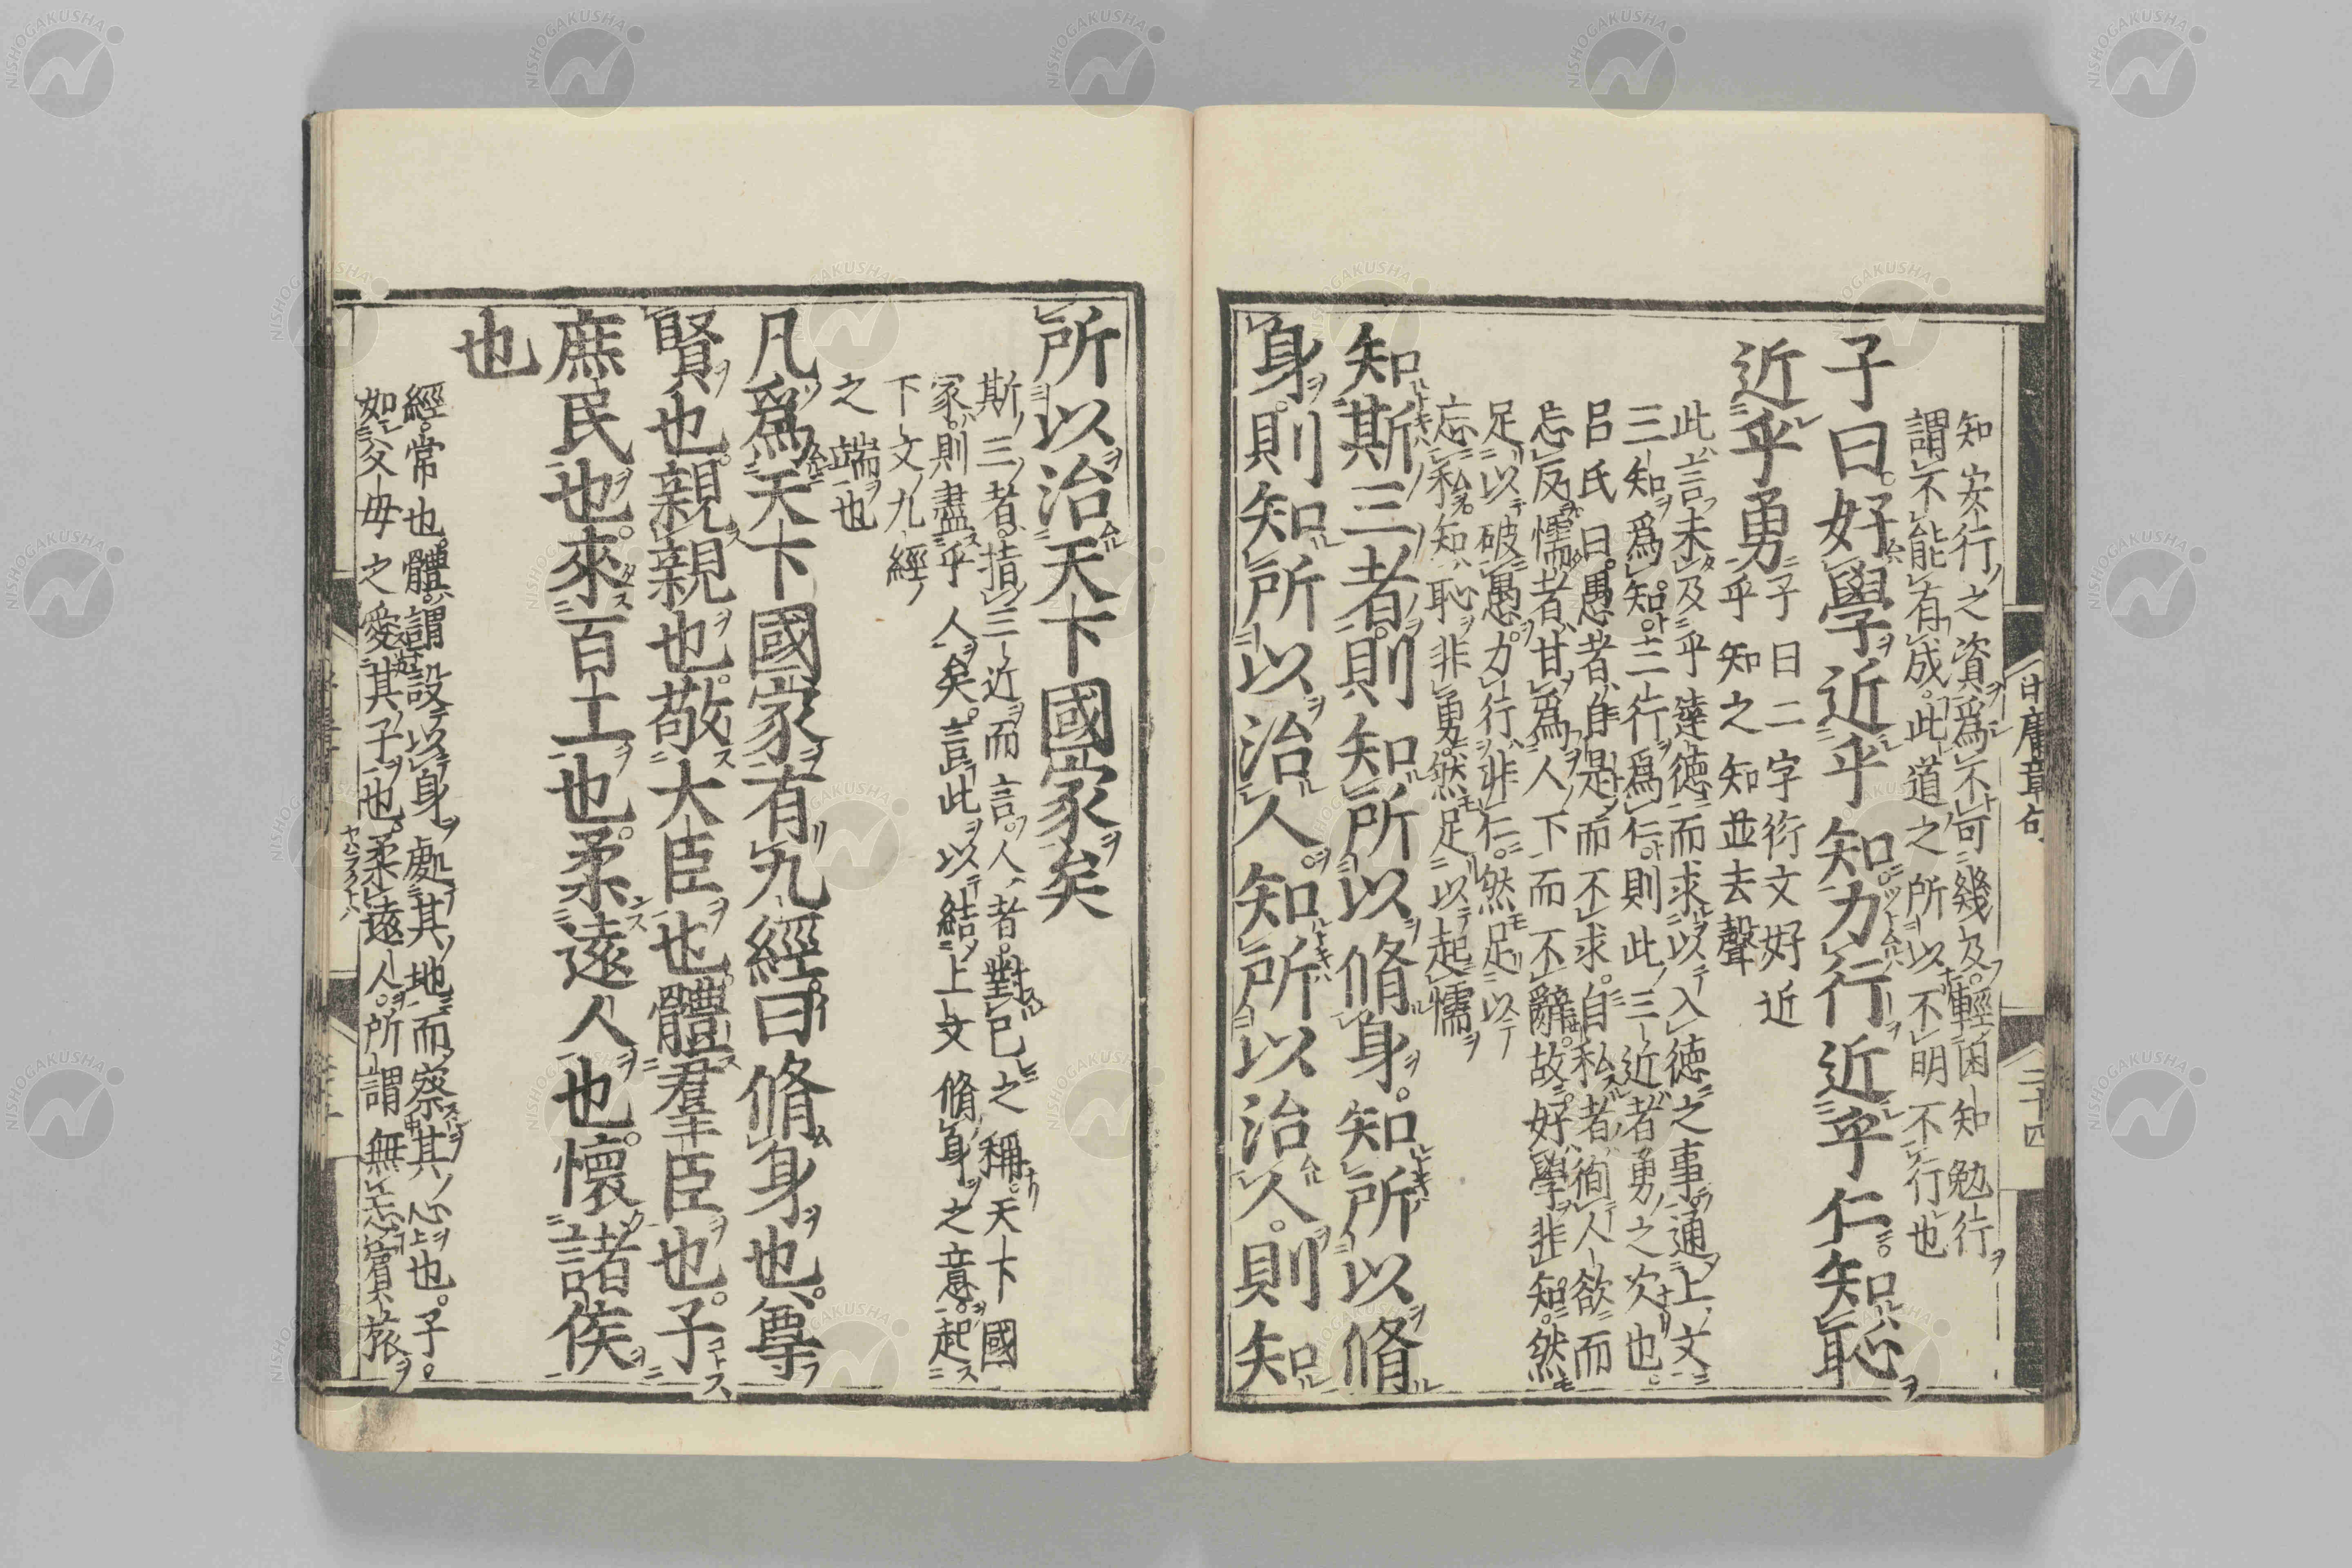 知安行之資爲不可幾及輕困知勉行
謂不能有成此道之所以不明不行也
子曰好學近乎知力行近乎仁知恥
近乎勇
子曰二字衍文好近
乎知之知並去聲
此言未及乎達德而求以入德之事通上文
三知爲知三行爲仁則此三近者勇之次也
呂氏曰愚者自是而不求自私者徇人欲而
忘反懦者甘爲人下而不辭故好學非知然
足以破愚力行非仁然足以
忘私知恥非勇然足以起懦
知斯三者則知所以脩身知所以脩
身則知所以治人知所以治人則知
所以治天下國家矣
斯三者指三近而言人者對己之稱天下國
家則盡乎人矣言此以結上文脩身之意起
下文九經
之端也
凡爲天下國家有九經曰脩身也尊
賢也親親也敬大臣也體羣臣也子
庶民也來百工也柔遠人也懷諸侯
也
經常也體謂設以身處其地而察其心也子
如父母之愛其子也柔遠人所謂無忘賓旅
中庸章句
二十四
NISHOGAKUSHA